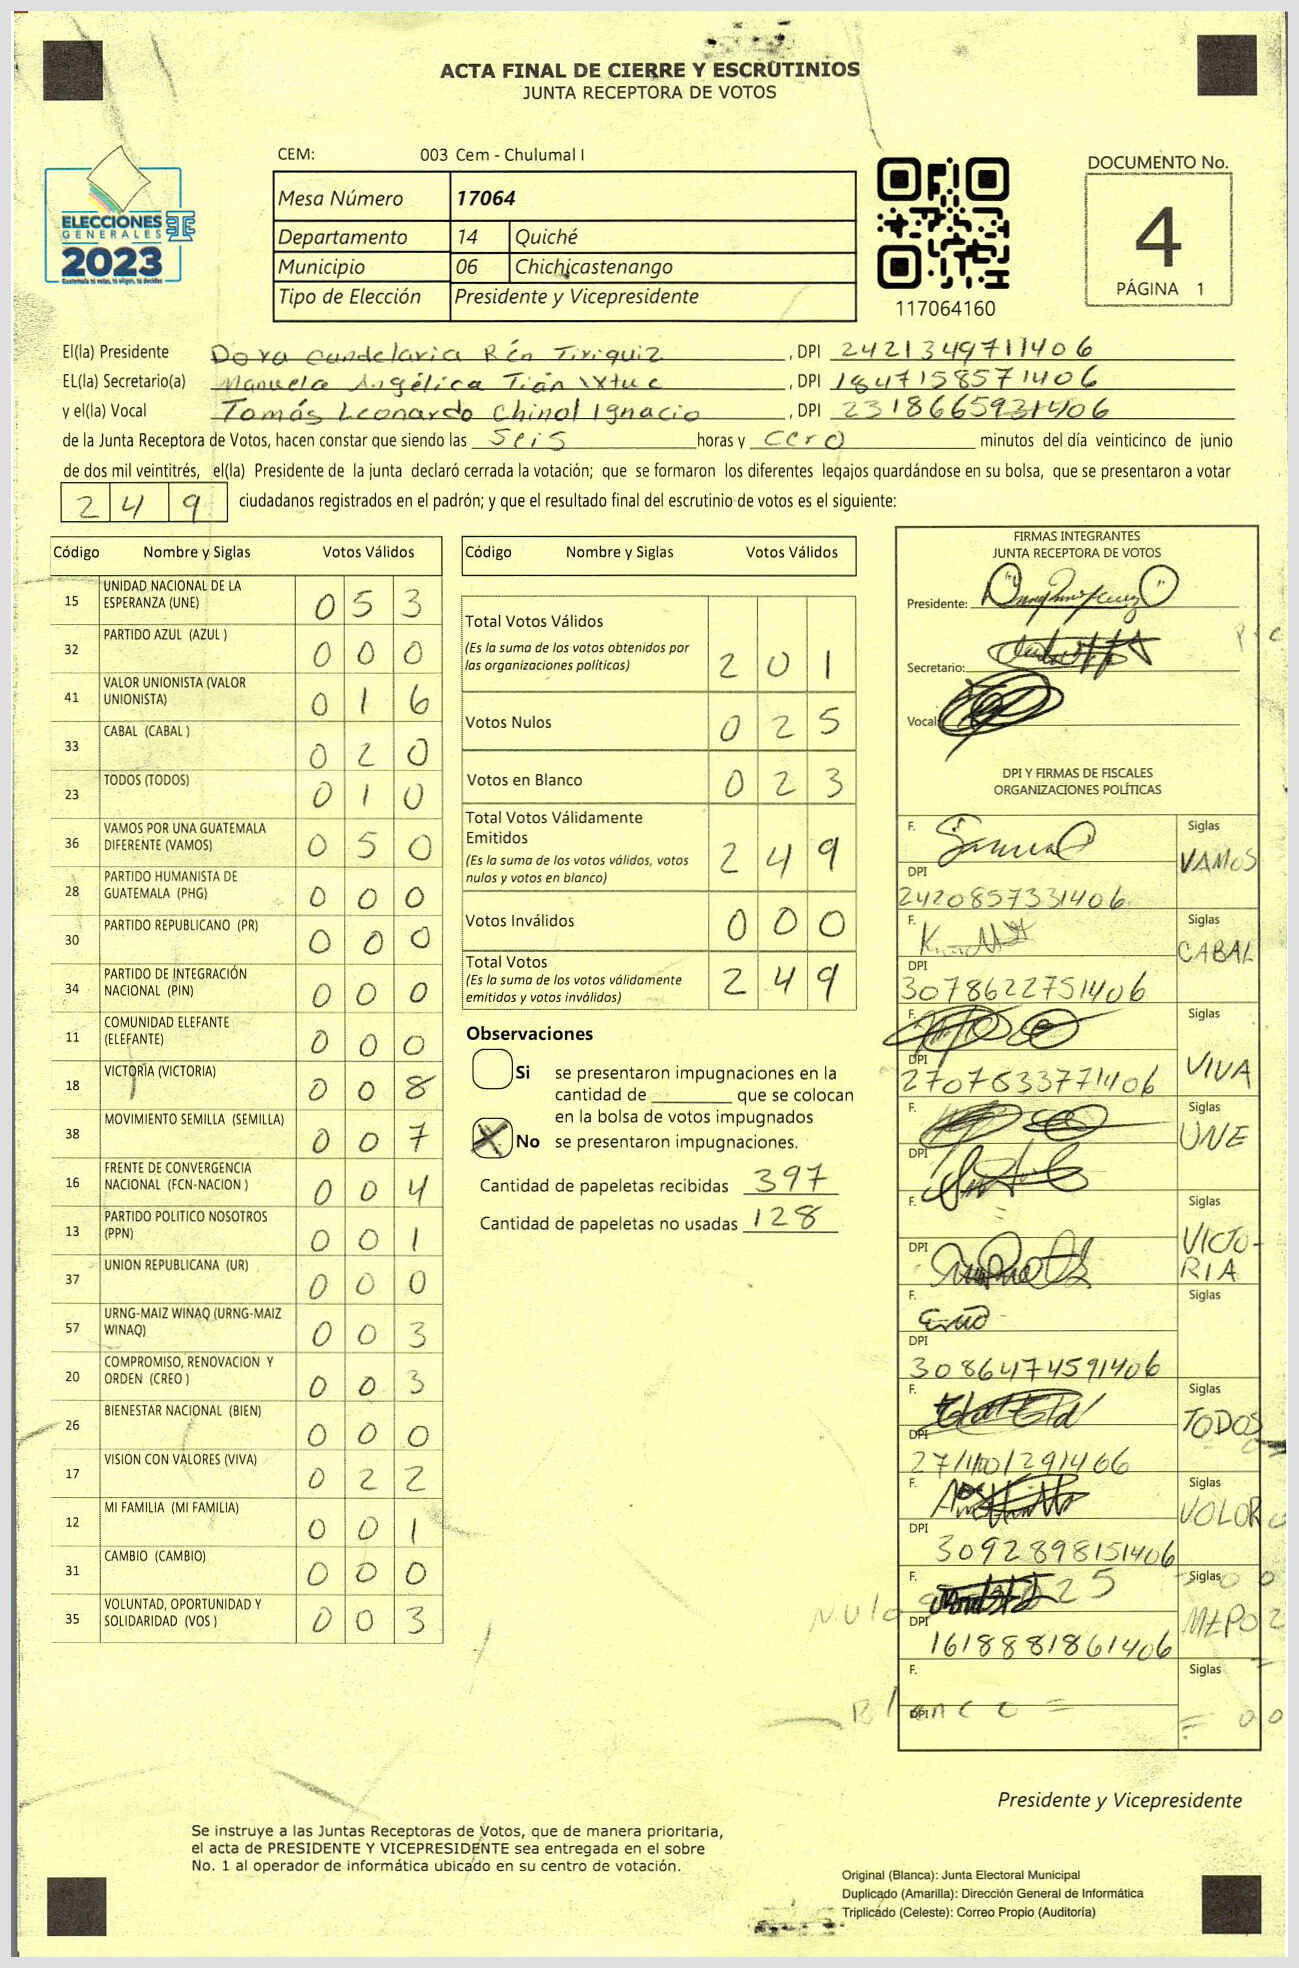 ACTA FINAL DE CIERRE Y ESCRUTINIOS
JUNTA RECEPTORA DE VOTOS
ELECCIONES
GENERALES
2023
Guatemala tú votas, tú eliges, tú decides
CEM: 003 Cem - Chulumal I
Mesa Número 17064
Departamento 14 Quiché
Municipio 06 Chichicastenango
Tipo de Elección Presidente y Vicepresidente
117064160
DOCUMENTO No.
4
PÁGINA 1
El(la) Presidente Dora Candelaria Rén Tiriquiz , DPI 2421349711406
EL(la) Secretario(a) Manuela Angélica Tián Ixtuc , DPI 1847158571406
y el(la) Vocal Tomás Leonardo Chinol Ignacio , DPI 2318665931406
de la Junta Receptora de Votos, hacen constar que siendo las seis horas y cero minutos del día veinticinco de junio
de dos mil veintitrés, el(la) Presidente de la junta declaró cerrada la votación; que se formaron los diferentes legajos quardándose en su bolsa, que se presentaron a votar
249 ciudadanos registrados en el padrón; y que el resultado final del escrutinio de votos es el siguiente:
Código Nombre y Siglas Votos Válidos
15 UNIDAD NACIONAL DE LA ESPERANZA (UNE) 053
32 PARTIDO AZUL (AZUL ) 000
41 VALOR UNIONISTA (VALOR UNIONISTA) 016
33 CABAL (CABAL ) 020
23 TODOS (TODOS) 010
36 VAMOS POR UNA GUATEMALA DIFERENTE (VAMOS) 050
28 PARTIDO HUMANISTA DE GUATEMALA (PHG) 000
30 PARTIDO REPUBLICANO (PR) 000
34 PARTIDO DE INTEGRACIÓN NACIONAL (PIN) 000
11 COMUNIDAD ELEFANTE (ELEFANTE) 000
18 VICTORIA (VICTORIA) 008
38 MOVIMIENTO SEMILLA (SEMILLA) 007
16 FRENTE DE CONVERGENCIA NACIONAL (FCN-NACION ) 004
13 PARTIDO POLITICO NOSOTROS (PPN) 001
37 UNION REPUBLICANA (UR) 000
57 URNG-MAIZ WINAQ (URNG-MAIZ WINAQ) 003
20 COMPROMISO, RENOVACION Y ORDEN (CREO ) 003
26 BIENESTAR NACIONAL (BIEN) 000
17 VISION CON VALORES (VIVA) 022
12 MI FAMILIA (MI FAMILIA) 001
31 CAMBIO (CAMBIO) 000
35 VOLUNTAD, OPORTUNIDAD Y SOLIDARIDAD (VOS ) 003
Código Nombre y Siglas Votos Válidos
Total Votos Válidos 201
(Es la suma de los votos obtenidos por
las organizaciones políticas)
Votos Nulos 025
Votos en Blanco 023
Total Votos Válidamente
Emitidos 249
(Es la suma de los votos válidos, votos
nulos y votos en blanco)
Votos Inválidos 000
Total Votos 249
(Es la suma de los votos válidamente
emitidos y votos inválidos)
Observaciones
Si se presentaron impugnaciones en la
cantidad de ________ que se colocan
en la bolsa de votos impugnados
X No se presentaron impugnaciones.
Cantidad de papeletas recibidas 397
Cantidad de papeletas no usadas 128
FIRMAS INTEGRANTES
JUNTA RECEPTORA DE VOTOS
Presidente:
Secretario:
Vocal:
DPI Y FIRMAS DE FISCALES
ORGANIZACIONES POLÍTICAS
F. Siglas
VAMOS
DPI
2420857331406
F. Siglas
CABAL
DPI
3078622751406
F. Siglas
VIVA
DPI
F. Siglas
UNE
DPI
F. Siglas
VICTO-
RIA
DPI
F. Siglas
DPI
3086474591406
F. Siglas
TODOS
DPI
F. Siglas
VOLOR
DPI
3092898151406
F. Siglas
Nulo 25
DPI
1618881861406
F. Siglas
Blanco =
DPI
Presidente y Vicepresidente
Se instruye a las Juntas Receptoras de Votos, que de manera prioritaria,
el acta de PRESIDENTE Y VICEPRESIDENTE sea entregada en el sobre
No. 1 al operador de informática ubicado en su centro de votación.
Original (Blanca): Junta Electoral Municipal
Duplicado (Amarilla): Dirección General de Informática
Triplicado (Celeste): Correo Propio (Auditoría)